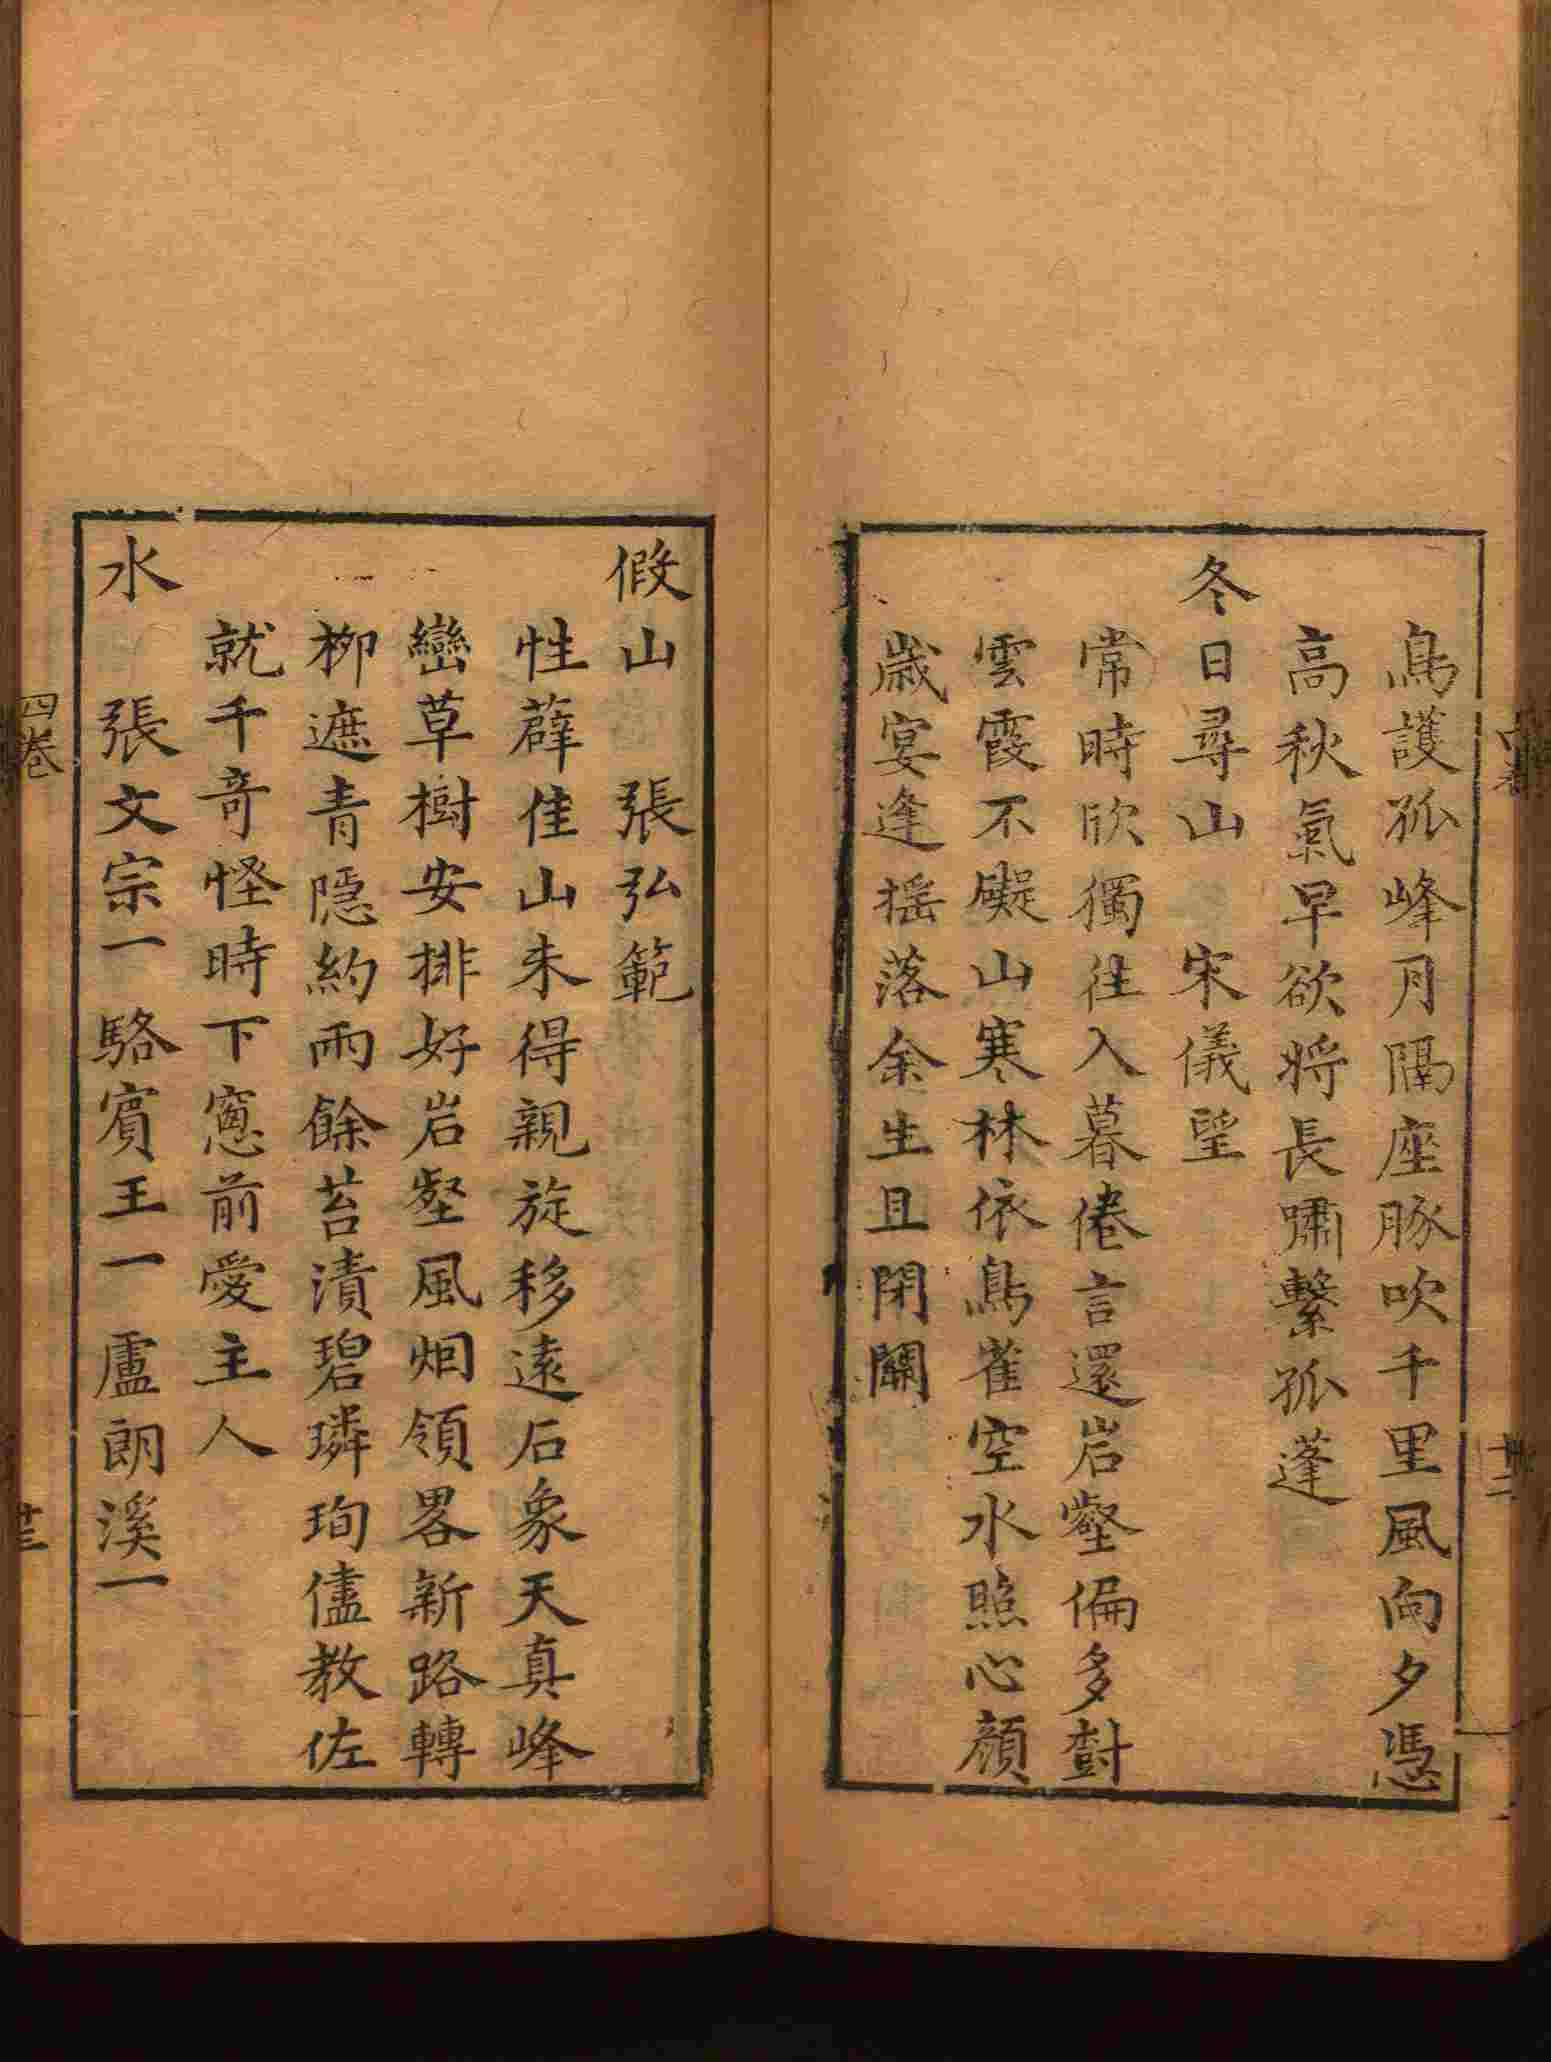 鳥護孤峰月隔座豚吹千里風向夕憑
高秋氣早欲將長嘯繫孤蓬
冬日尋山　宋儀望
常時欣獨往入暮倦言還岩壑偏多對
雲霞不礙山寒林依鳥雀空水照心顏
歲宴逢搖落余生且閉關
廿二
假山　張弘範
性薜佳山未得親旋移遠石象天真峰
巒草樹安排好岩壑風烟領畧新路轉
柳遮青隱約雨餘苔漬碧璘珣儘教佐
就千奇怪時下窻前愛主人
水　張文宗一駱賓王一盧朗溪一
四卷
廿三